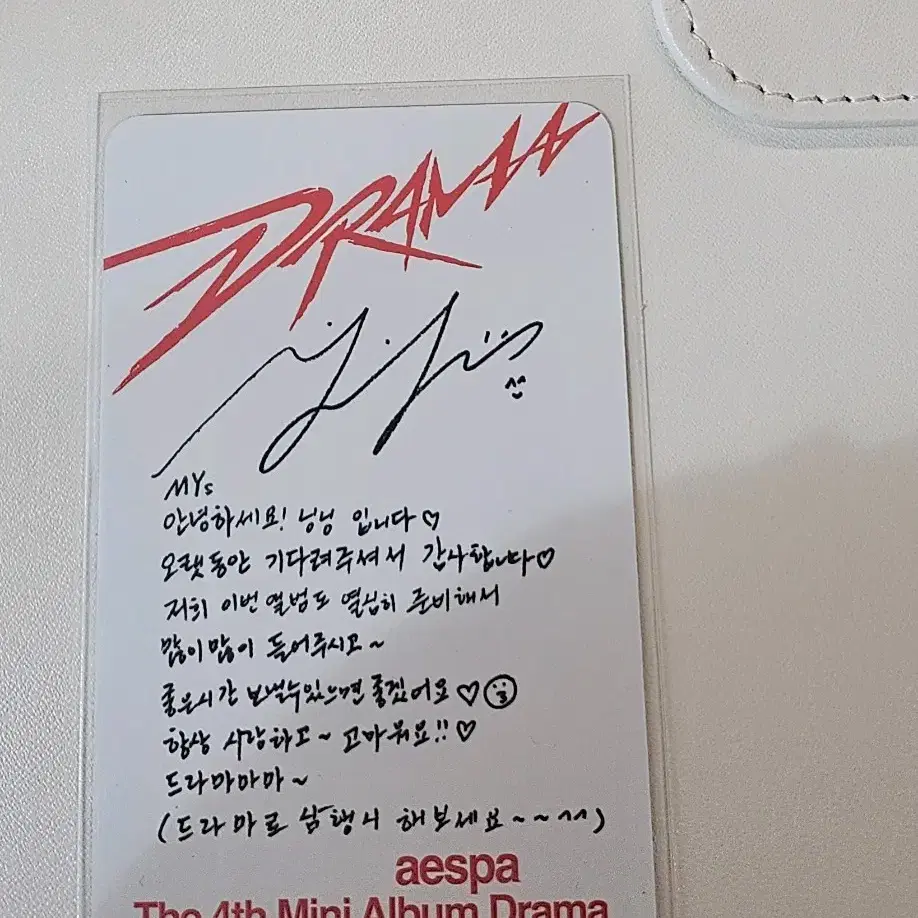 DRAMA
MYs
안녕하세요! 닝닝 입니다♡
오랫동안 기다려주셔서 감사합니다♡
저희 이번 앨범도 열심히 준비해서
많이많이 들어주시고~
좋은시간 보낼수있으면 좋겠어요♡
항상 사랑하고~ 고마워요!!♡
드라마마마~
(드라마로 삼행시 해보세요~~^^)
aespa
The 4th Mini Album Drama